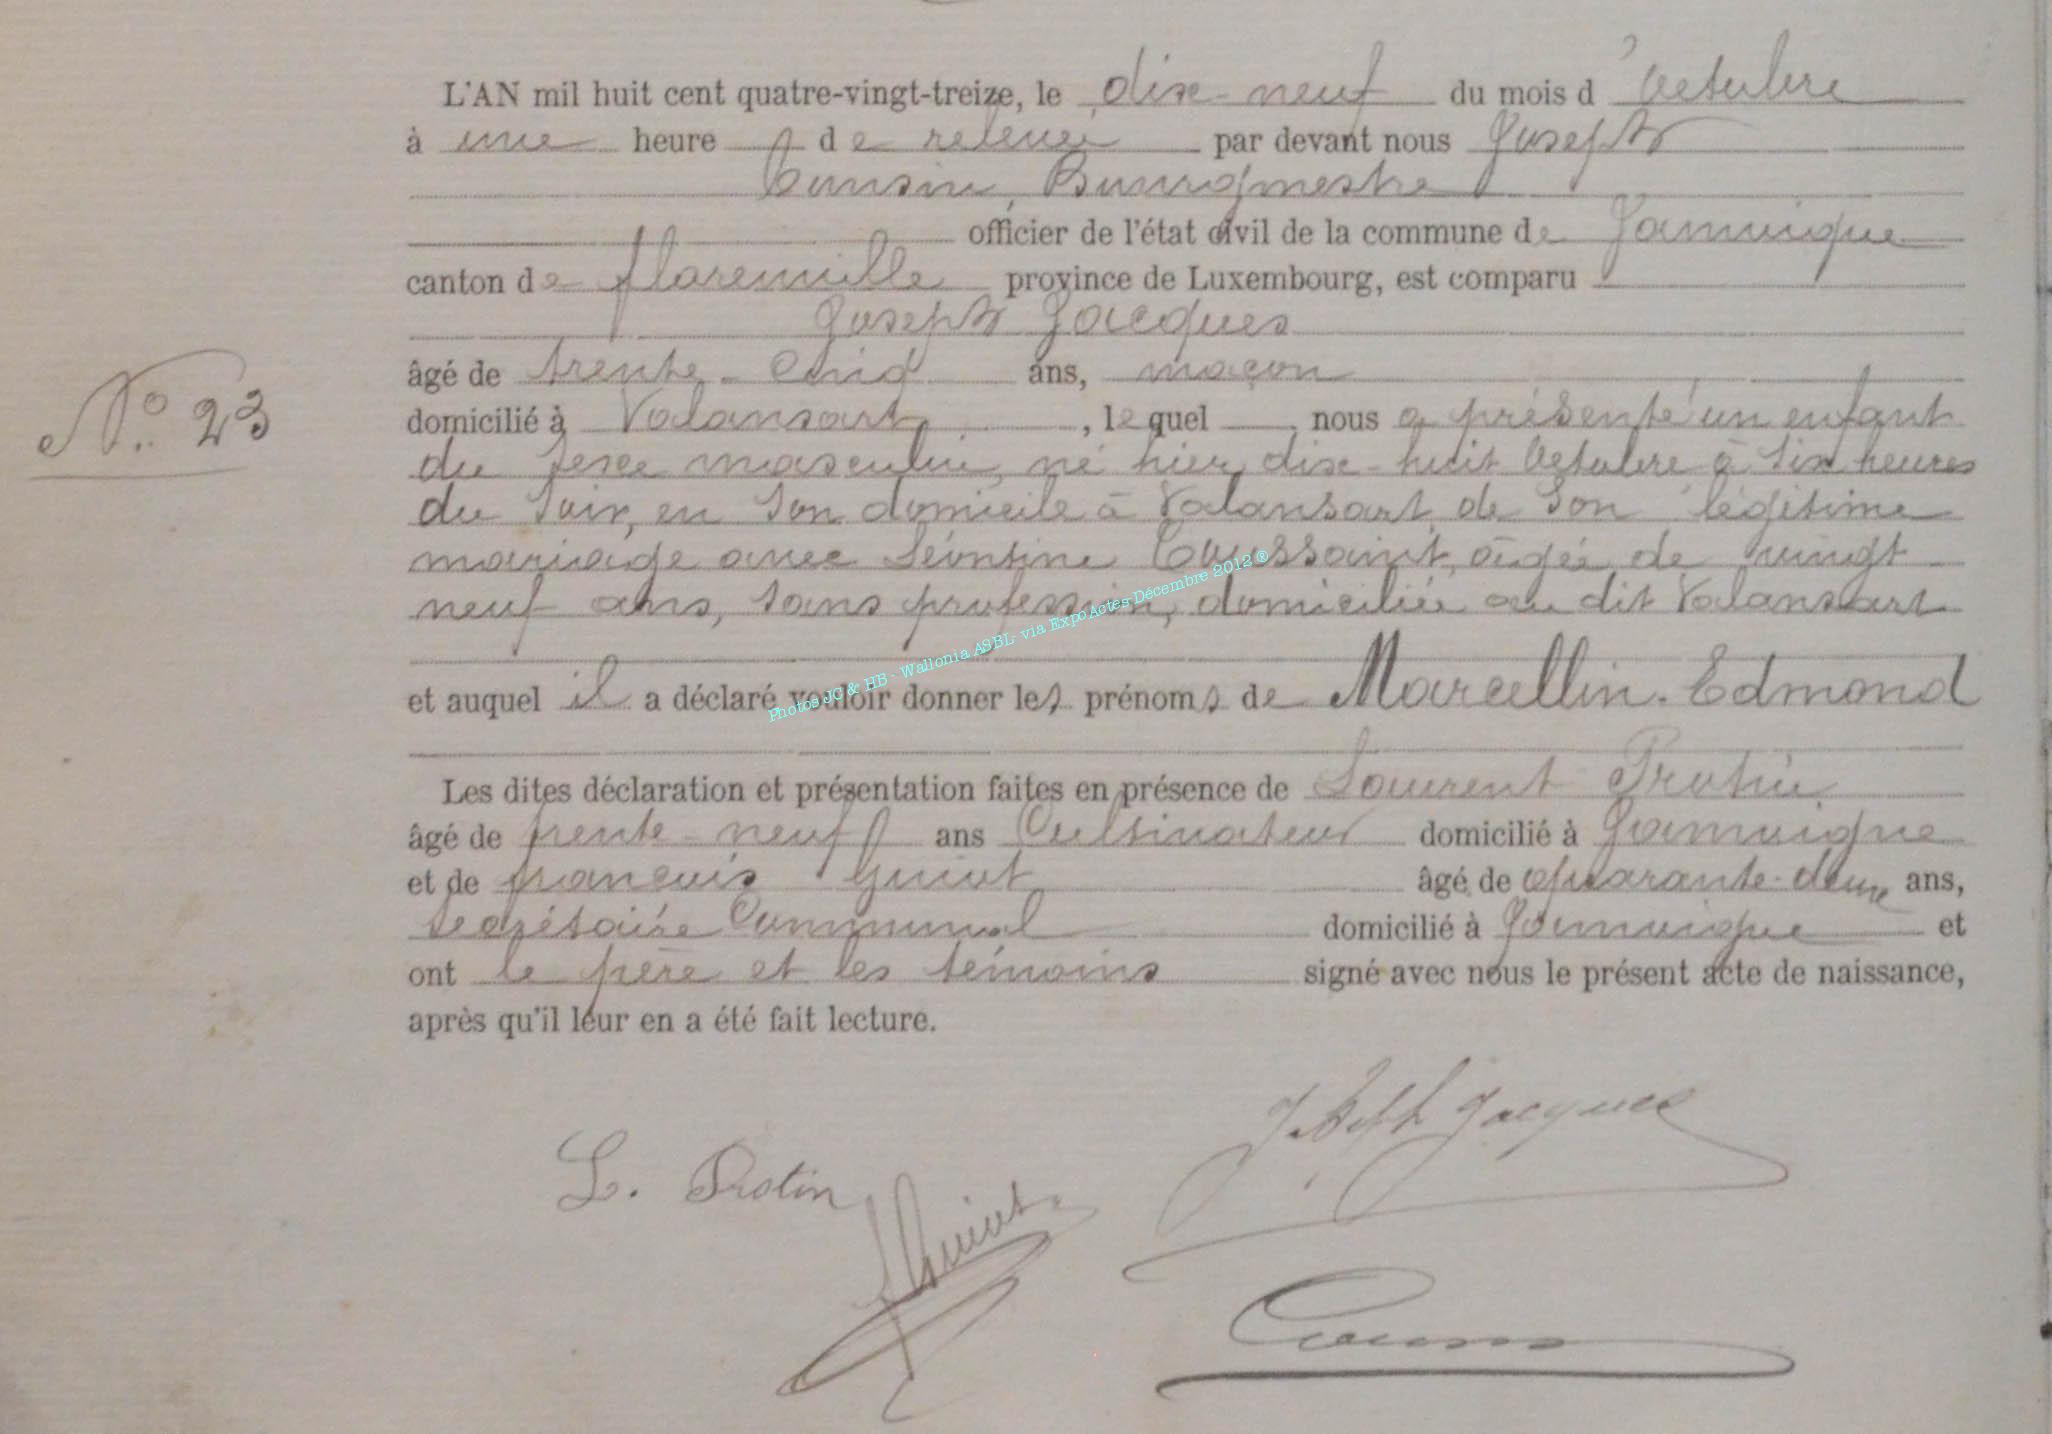 L'AN mil huit cent quatre-vingt-treize, le dix-neuf du mois d'Octobre
à une heure de relevée par devant nous Joseph
Cousin, Bourgmestre
officier de l'état civil de la commune de Jamoigne
canton de florenville province de Luxembourg, est comparu
Joseph Jacques
âgé de trente-cinq ans, maçon
N° 23
domicilié à Valansart, lequel nous a présenté un enfant
du sexe masculin, né hier, dix-huit Octobre à six heures
du soir, en son domicile à Valansart, de son légitime
mariage avec Léontine Toussaint, agée de vingt
neuf ans, sans profession, domiciliée au dit Valansart
et auquel il a déclaré vouloir donner les prénoms de Marcellin-Edmond
Photos JC & HB - Wallonia ASBL- via ExpoActes-Décembre 2012 ®
Les dites déclaration et présentation faites en présence de Laurent Protin
âgé de trente-neuf ans Cultivateur domicilié à Jamoigne
et de françois Guiot âgé de quarante-deux ans,
secrétaire Communal domicilié à Jamoigne et
ont le père et les témoins signé avec nous le présent acte de naissance,
après qu'il leur en a été fait lecture.
Joseph Jacques
L. Protin
f Guiot
Cousin